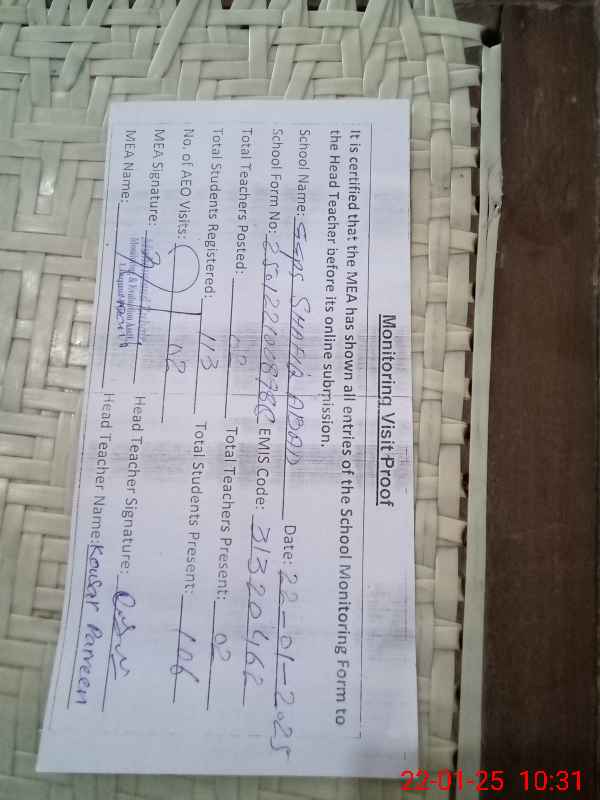 Monitoring Visit Proof
It is certified that the MEA has shown all entries of the School Monitoring Form to
the Head Teacher before its online submission.
School Name: GGPS SHAFIQ ABAD Date: 22-01-2025
School Form No: EMIS Code: 31320462
Total Teachers Posted: 02 Total Teachers Present: 02
Total Students Registered: 113 Total Students Present: 106
No. of AEO Visits: 02
MEA Signature: Head Teacher Signature:
MEA Name: Head Teacher Name: Kousar Parveen
Monitoring & Evaluation
22-01-25 10:31